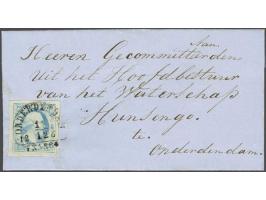 Aan.
Heeren Gecommitteerden
Uit het Hoofdbestuur
van het Waterschap
Hunsingo.
te.
Onderdendam.